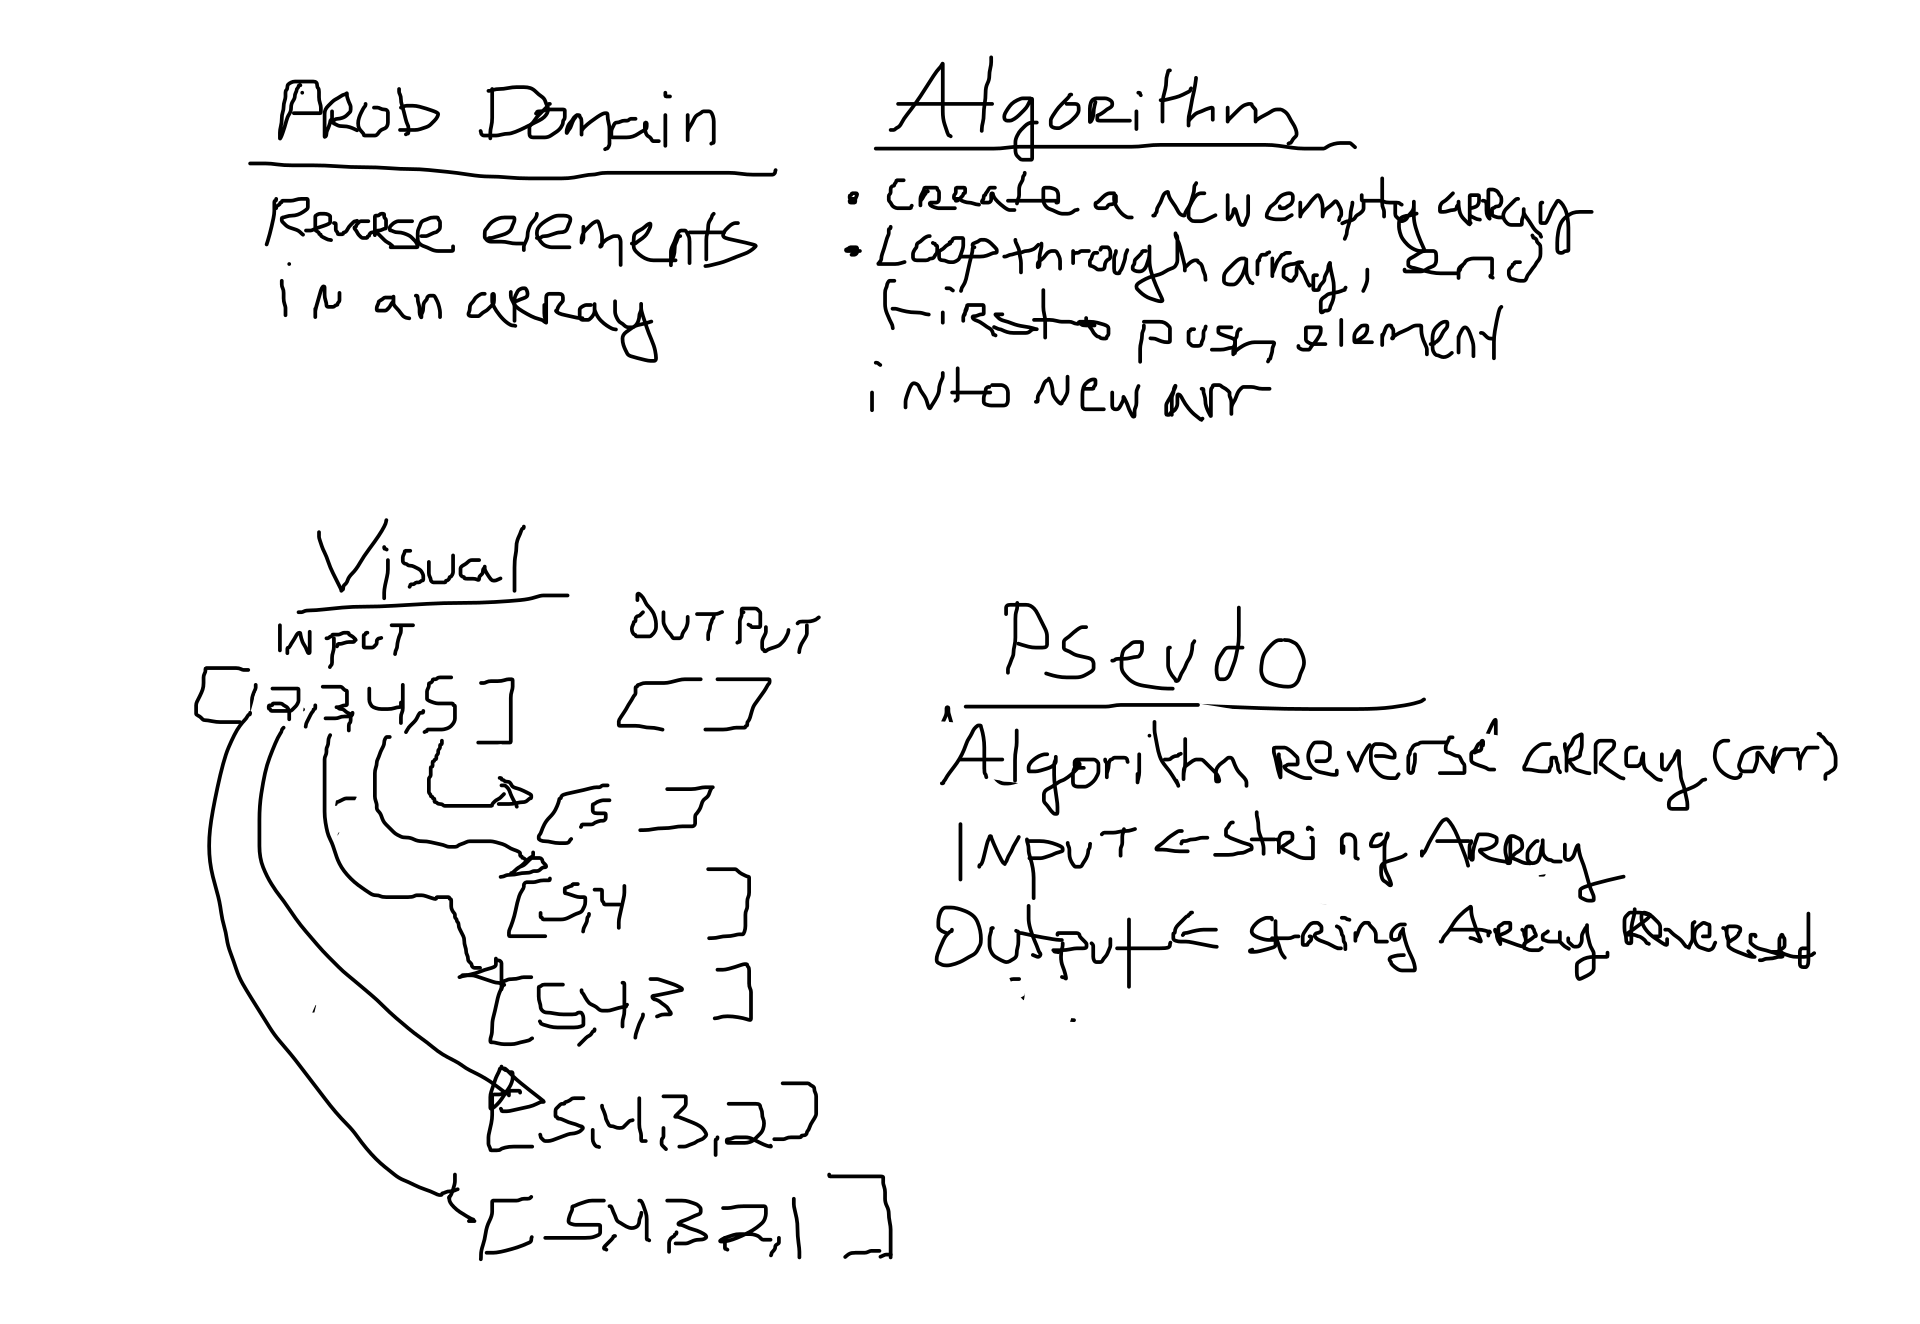 Prob Domain
Reverse elements
in an array
Algorithm
• Create a new empty array
• Loop through array, end
first to push element
into new arr
Visual
INPUT OUTPUT
[1 2,3,4,5] [ ]
[5 ]
[5,4 ]
[5,4,3 ]
[5,4,3,2]
[5,4,3 2,1 ]
Pseudo
Algorithm reverse array (arr)
INPUT <- string Array
Output <- string Array Reversed